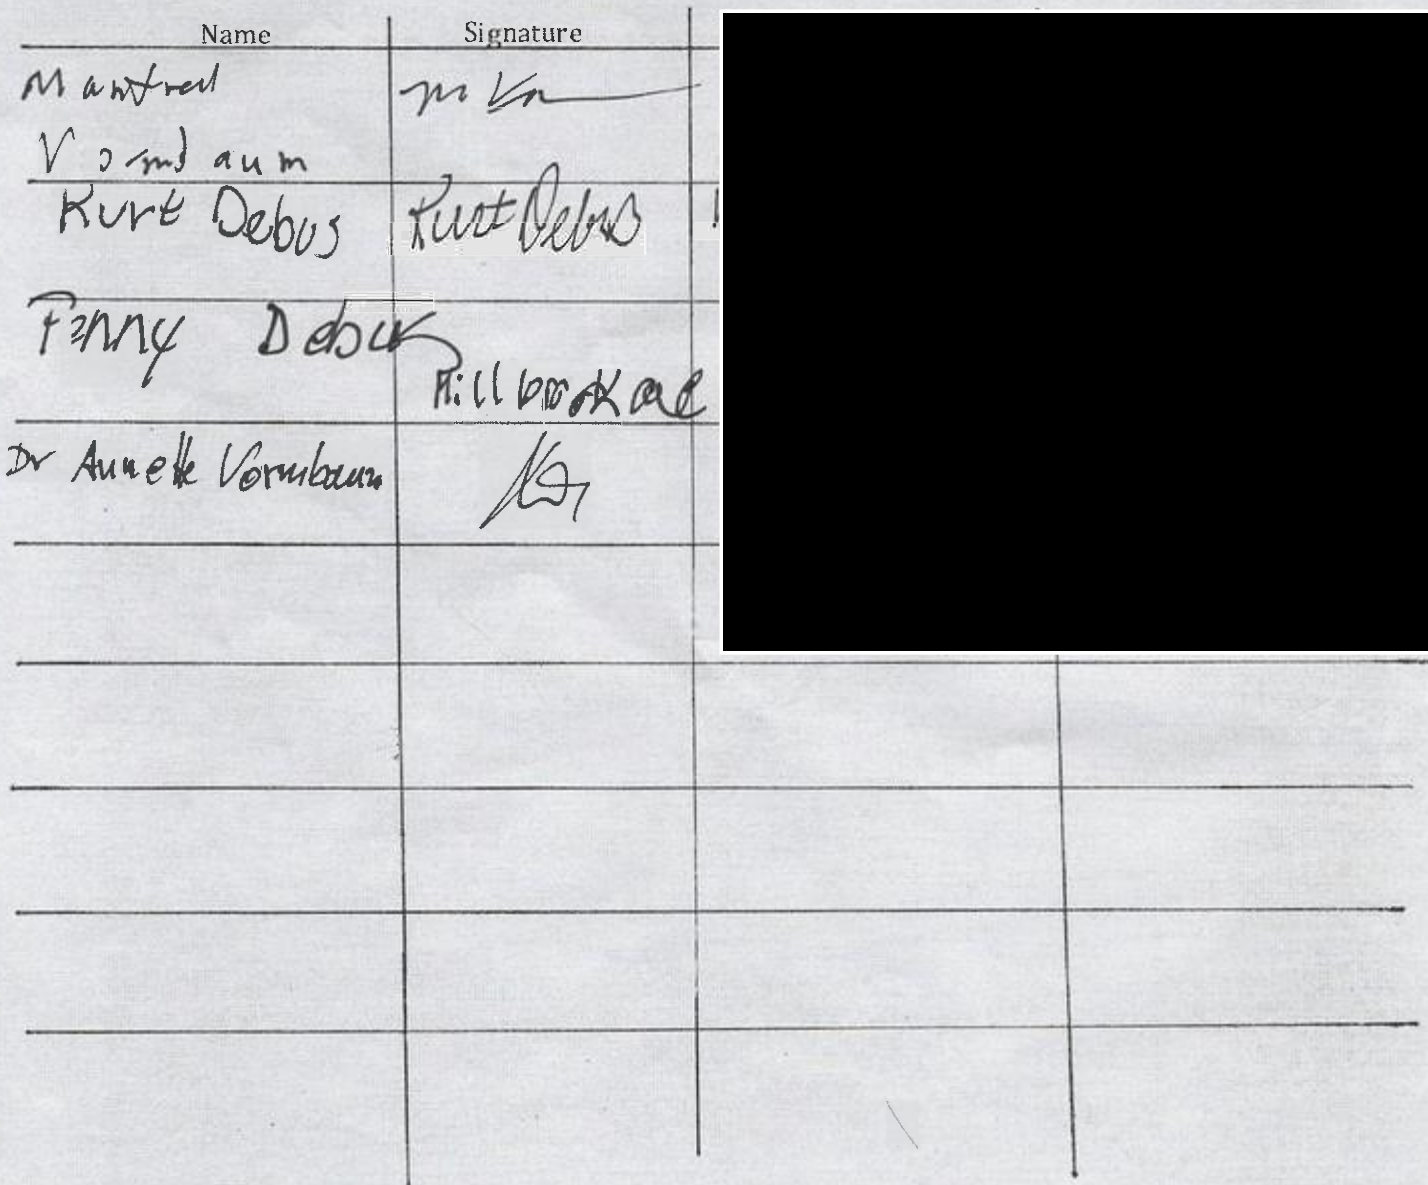 Name Signature
Manfred
Vormbaum
Kurt Debus Kurt Debus
Fanny Debus
Dr Annette Vormbaum